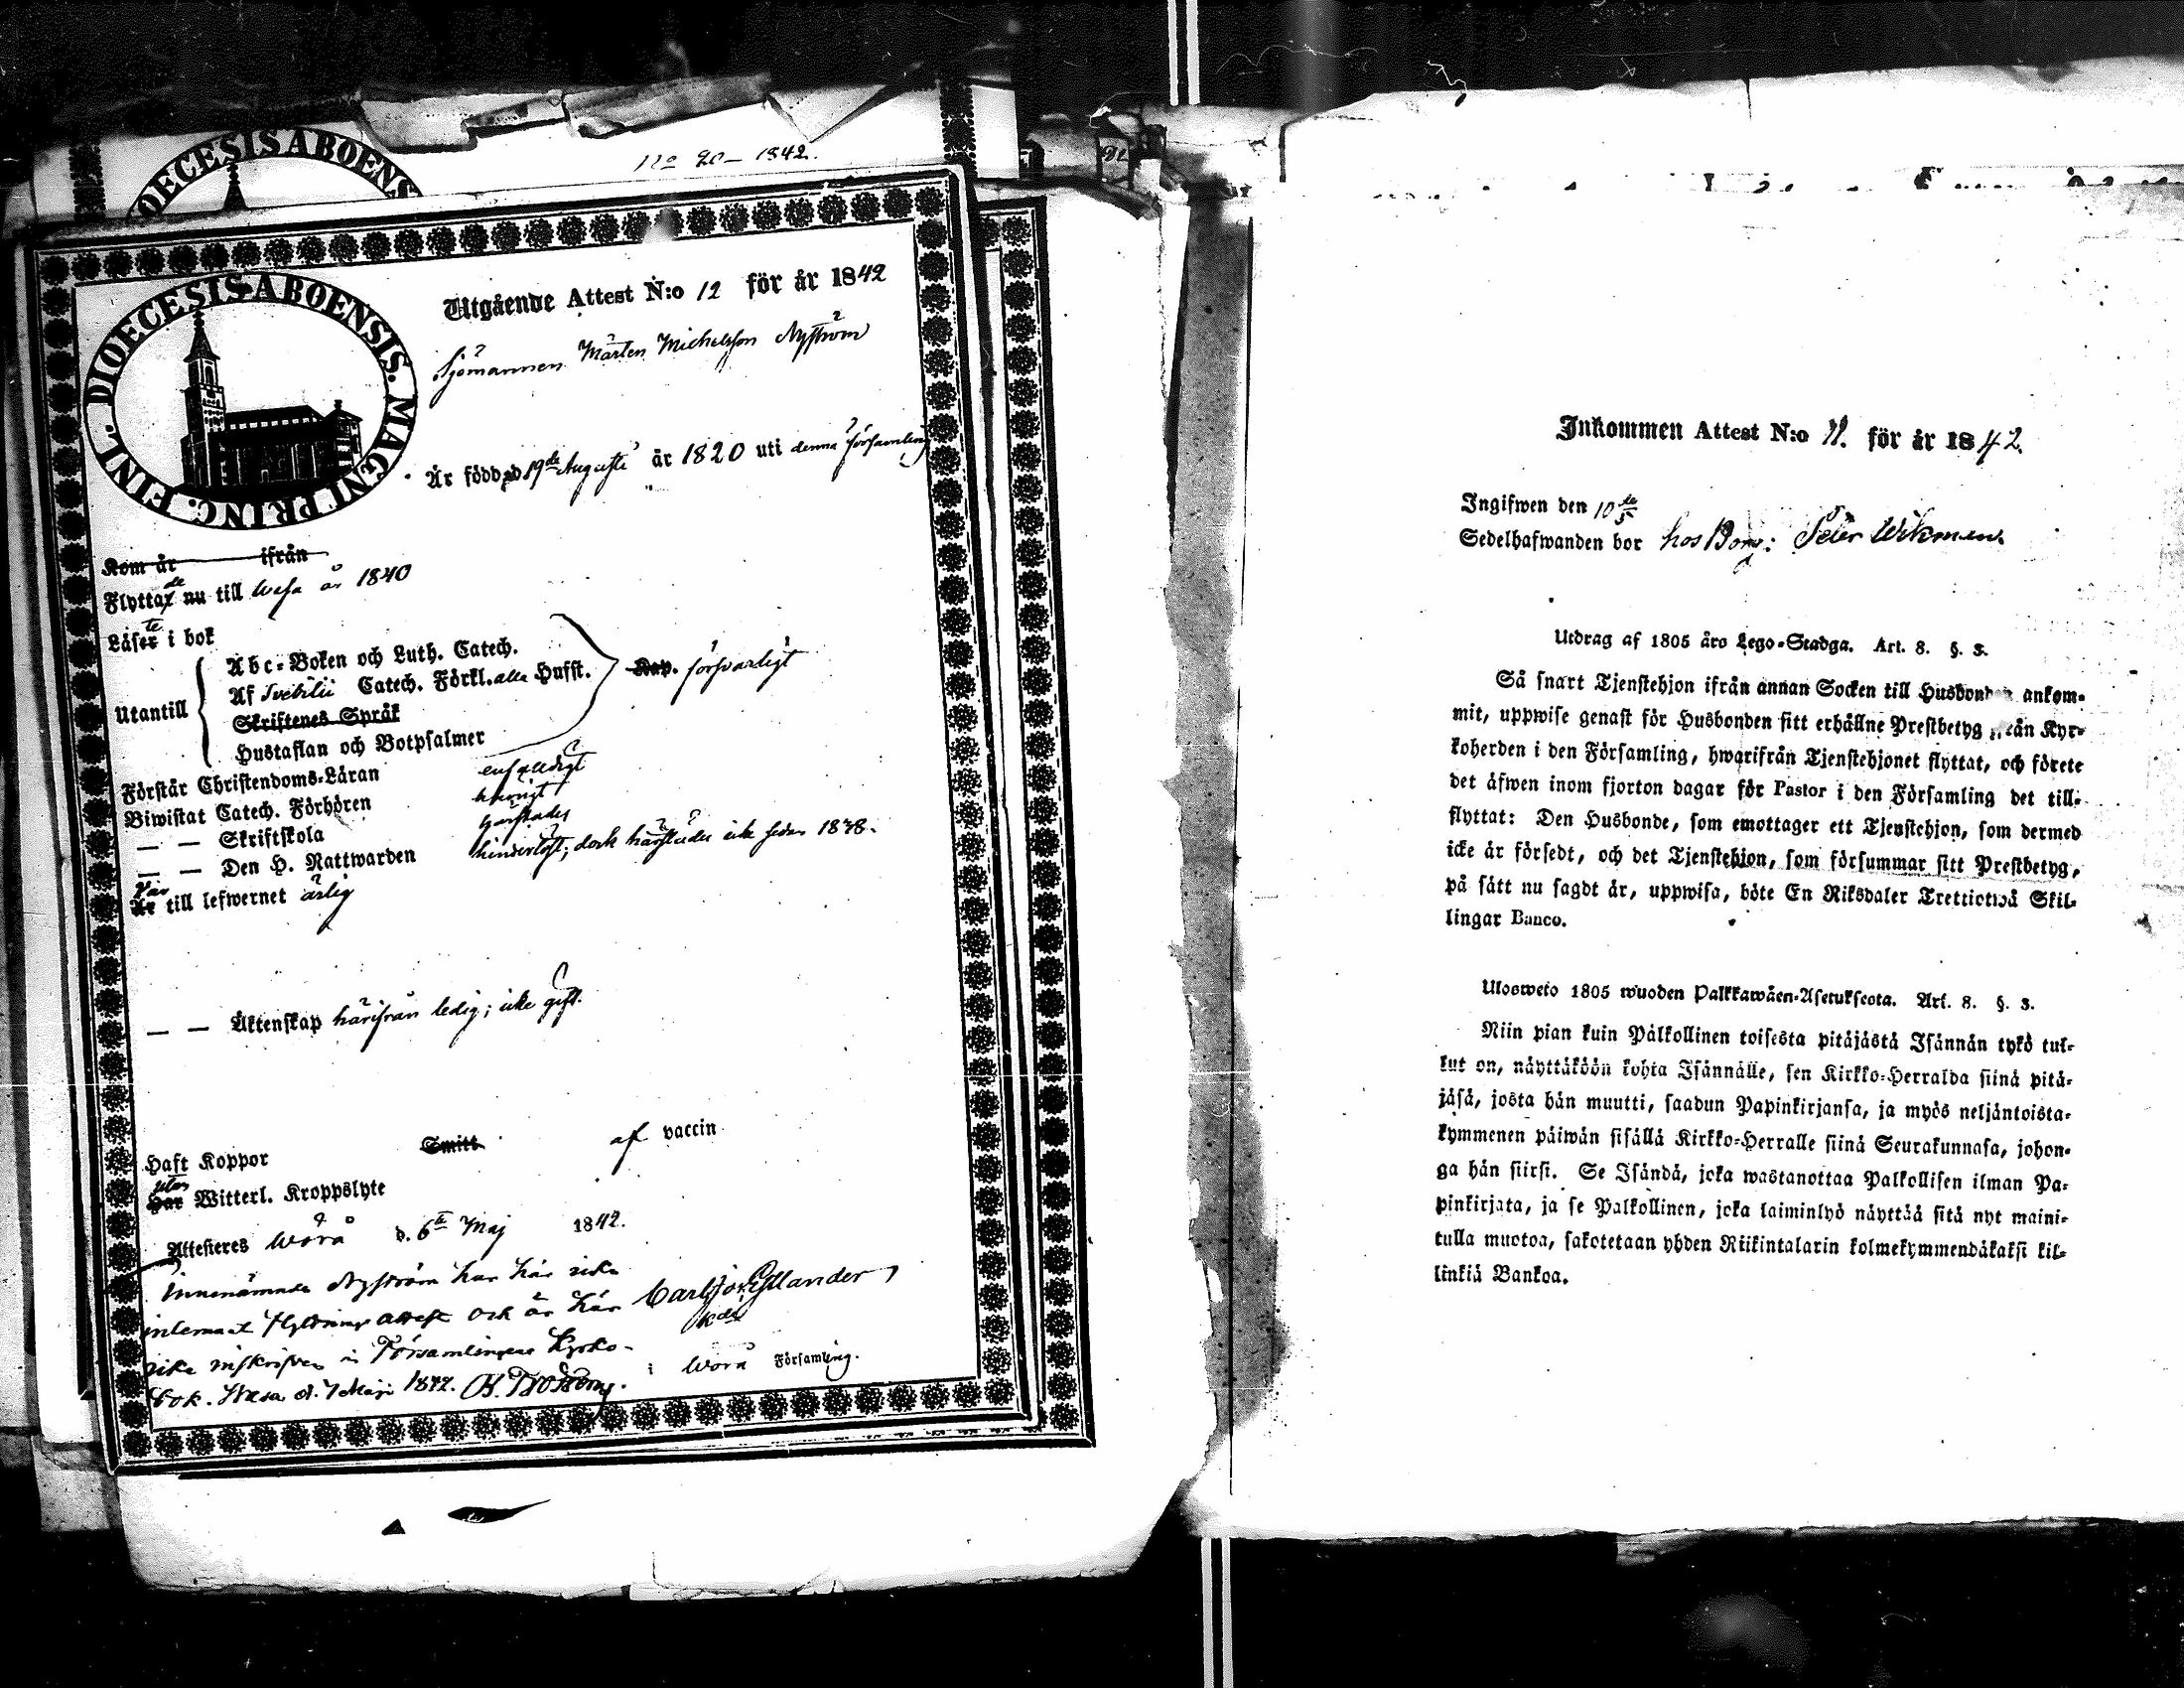 DIOECESIS ABOENS
No 20 – 1842.
DIOECESIS ABOENSIS. MAGNI PRINC. FINL.
Utgående Attest N:o 12 för år 1842
Sjömannen Mårten Michelsson Nyström
Är född d 19de Augusti år 1820 uti denna församling
Kom år ifrån
Flyttade nu till Wasa år 1840
Läste i bok
Utantill
Abc-Boken och Luth. Catech.
Af Svebilii Catech. Förkl. alla Hufst.
Skriftenes Språk
Hustaflan och Botpsalmer
Kap. försvarligt
Förstår Christendoms-Läran enfaldigt
Biwistat Catech. Förhören
— — Skriftskola
— — Den H. Nattwarden hinderlöst; dock härstädes icke sedan 1838.
Var till lefwernet ärlig
— — Äktenskap härifrån ledig; icke gift.
Haft Koppor Smitt af vaccin
utan Witterl. Kroppslyte
Attesteres Wörå d. 6te Maj 1842.
Innenämnde Nyström har här icke
inlemnat flyttnings attest och är här
icke inskrifven i Församlingens Kyrko-
bok. Wasa d. 7 Maji 1842.
i Wörå Församling.
Inkommen Attest N:o 11. för år 1842.
Ingifwen den 10de/5
Sedelhafwanden bor hos Borg: Peter Wikman
Utdrag af 1805 års Lego-Stadga. Art. 8. §. 3.
Så snart Tjenstehjon ifrån annan Socken till Husbonden ankom-
mit, uppwise genast för Husbonden sitt erhållne Prestbetyg från Kyr-
koherden i den Församling, hwarifrån Tjenstehjonet flyttat, och förete
det äfwen inom fjorton dagar för Pastor i den Församling det till-
flyttat: Den Husbonde, som emottager ett Tjenstehjon, som dermed
icke är försedt, och det Tjenstehjon, som försummar sitt Prestbetyg,
på sätt nu sagdt är, uppwisa, böte En Riksdaler Trettiotwå Skil-
lingar Banco.
Ulosweto 1805 wuoden Palkkawäen-Asetuksesta. Art. 8. §. 3.
Niin pian kuin Pålkollinen toisesta pitäjästä Isännän tykö tul-
lut on, näyttäköön kohta Isännälle, sen Kirkko-Herralda siinä pitä-
jäsä, josta hän muutti, saadun Papinkirjansa, ja myös neljäntoista-
kymmenen päiwän sisällä Kirkko-Herralle siinä Seurakunnasa, johon-
ga hän siirsi. Se Isändä, joka wastanottaa Palkollisen ilman Pa-
pinkirjata, ja se Palkollinen, joka laiminlyö näyttää sitä nyt maini-
tulla muotoa, sakotetaan yhden Riikintalarin kolmekymmendäkaksi kil-
linkiä Bankoa.